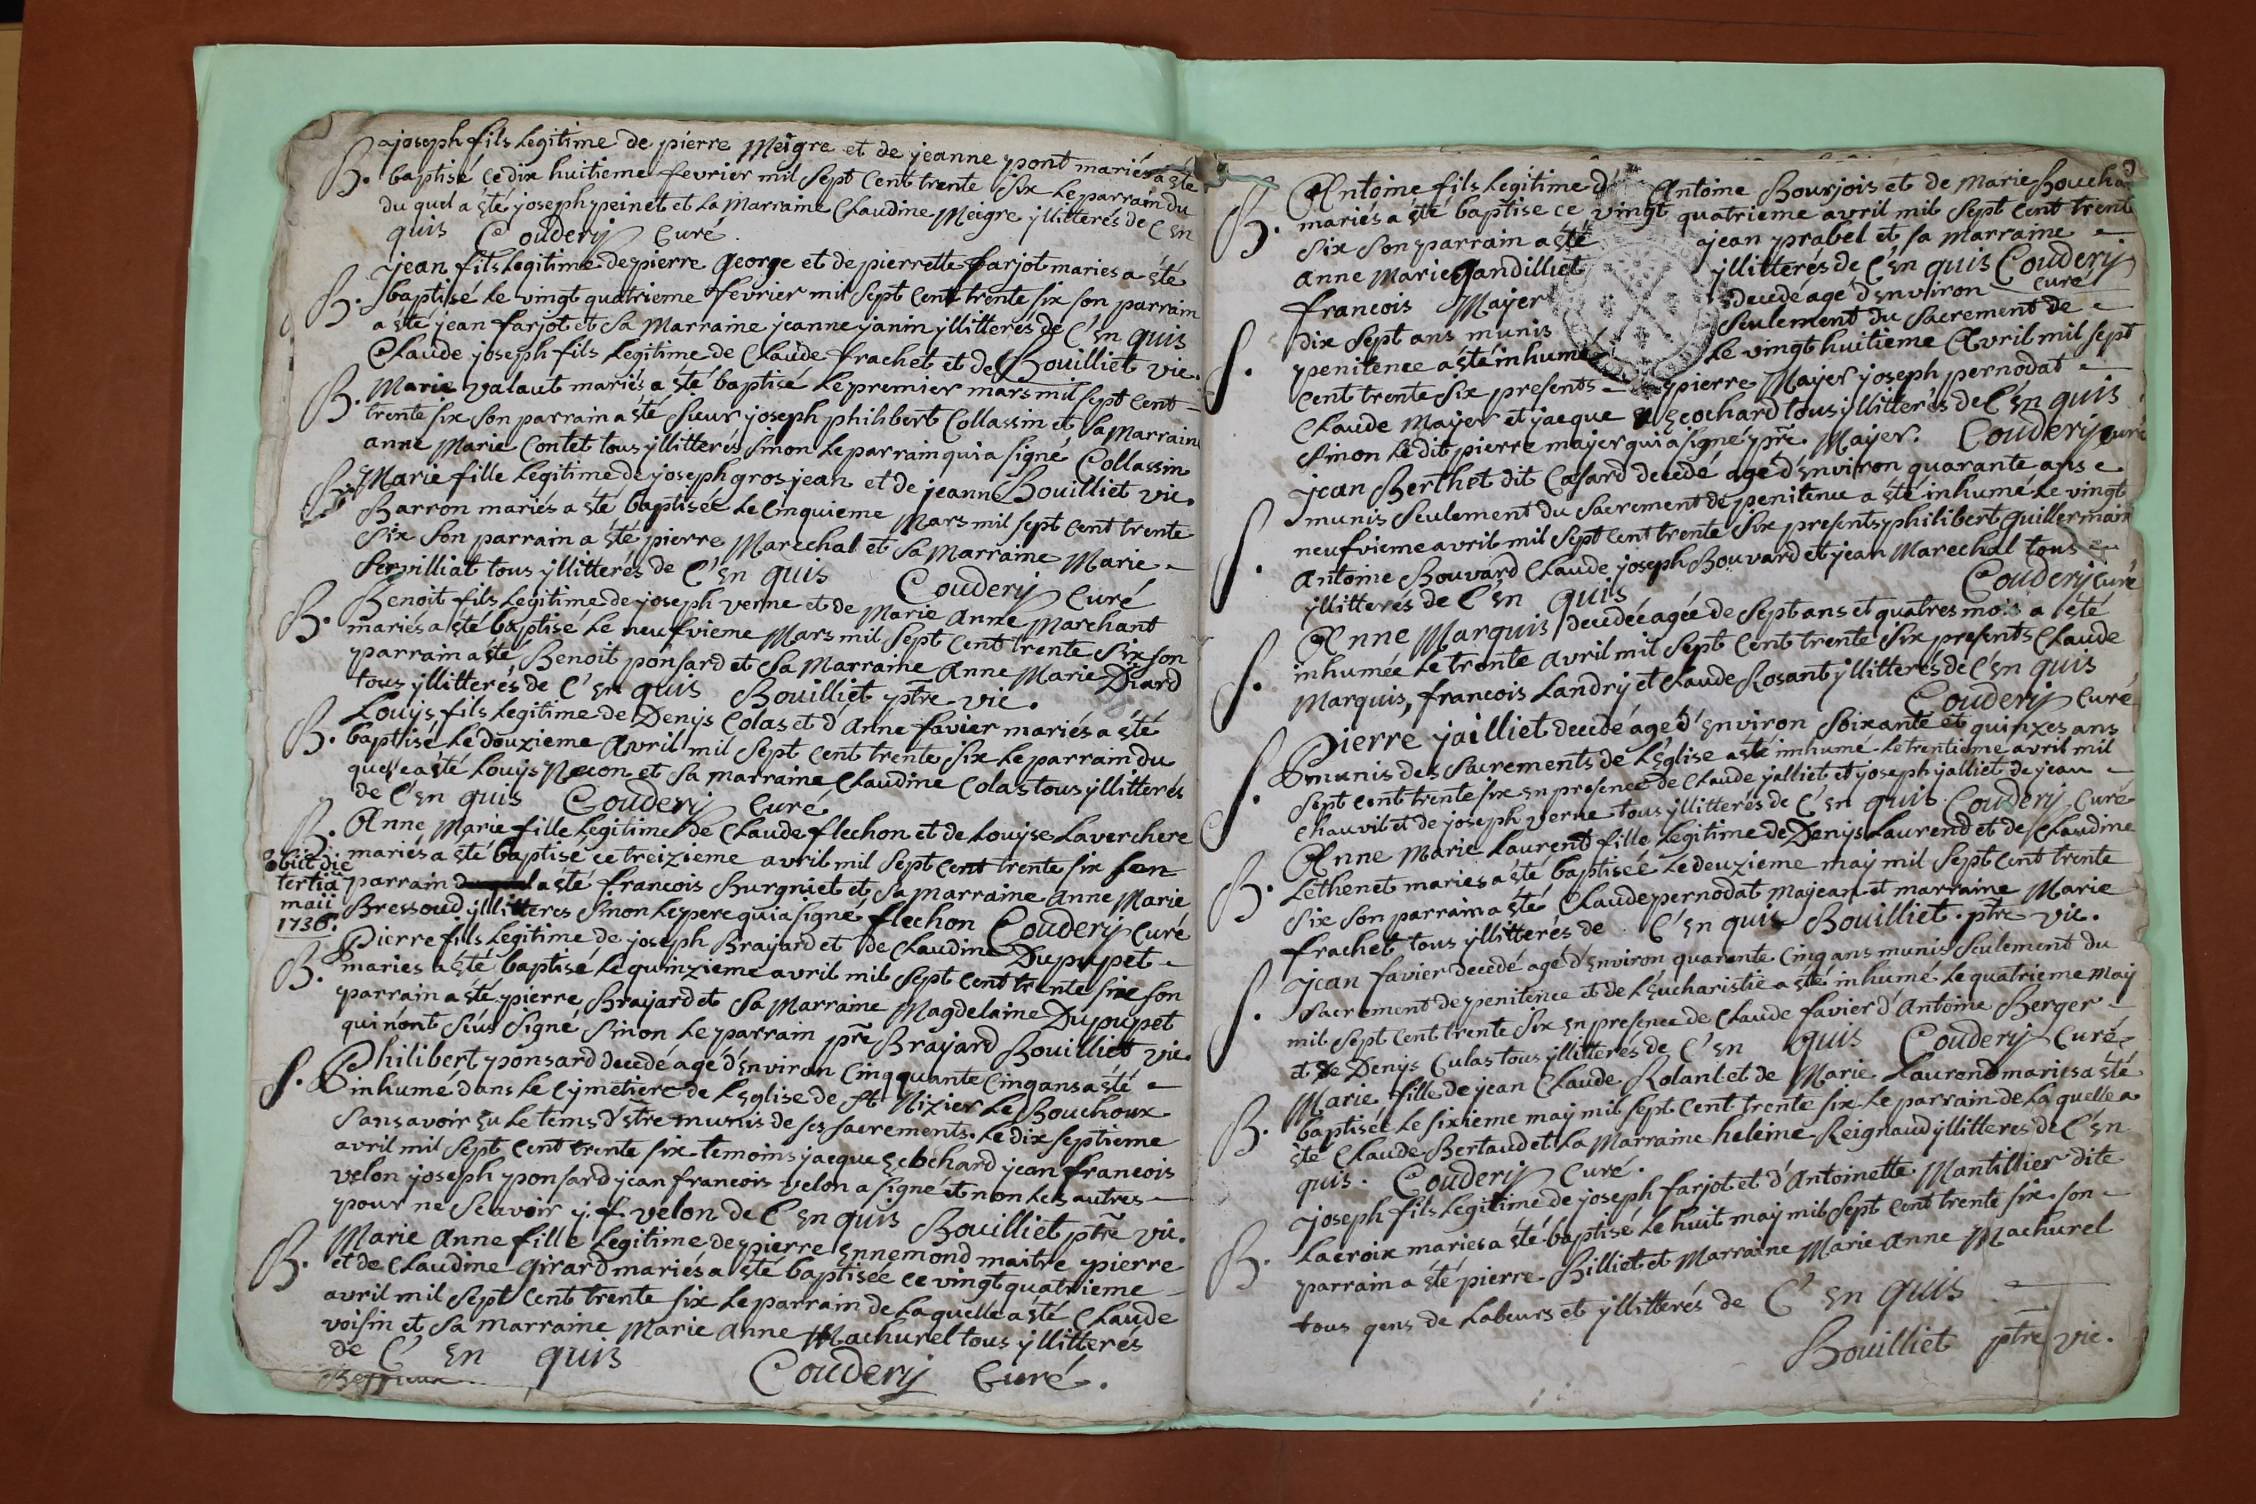 B. joseph fils Legitime de pierre Meigre et de jeanne pont mariés a été
baptisé ce dix huitieme fevrier mil sept cent trente six Le parrain du
du quel a été joseph peinet et La Marraine Claudine Meigre yllitterés de C' en
quis Coudery Curé
B. jean fils Legitime de pierre george et de pierrette farjot maries a été
baptisé Le vingt quatrieme fevrier mil sept cent trente six son parrain
a été jean farjot et Sa Marraine jeanne janin yllitterés de C' en quis
Bouilliet vic.
B. Claude joseph fils Legitime de Claude frachet et de
Marie valaut mariés a été baptisé Le premier mars mil sept cent
trente six Son parrain a été Sieur joseph philibert Collassin et Sa Marraine
anne Marie Contet tous yllitterés sinon Le parrain qui a signé Collassin
Bouilliet vic.
B. Marie fille Legitime de joseph gros jean et de jeanne
Barron mariés a été baptisée Le Cinquieme Mars mil sept cent trente
six Son parrain a été pierre Marechal et Sa Marraine Marie
Servilliat tous yllitterés de C' en quis Coudery Curé
B. Benoit fils Legitime de joseph verne et de Marie Anne Marchant
mariés a été baptisé Le neufvieme Mars mil Sept Cent trente Six son
parrain a été Benoit ponsard et Sa Marraine Anne Marie Diard
tous yllitterés de C' en quis Bouilliet ptre vic.
B. Louÿs fils Legitime de Denÿs Colas et d'Anne favier mariés a été
baptisé Le douzieme Avril mil Sept Cent trente Six Le parrain du
quel a été Louÿs Necon et Sa marraine Claudine Colas tous yllitterés
de C' en quis Coudery Curé
B. Anne Marie fille Legitime de Claude flechon et de Louÿse Laverchere
mariés a été baptisé ce treizieme avril mil sept cent trente six son
parrain a été francois Burgniet et Sa marraine Anne Marie
Bressoud yllitteres sinon Le pere qui a signé flechon Coudery Curé
obiit die
tertia
maii
1736.
B. Pierre fils Legitime de joseph Brajard et de Claudine Dupupet
maries a été baptisé Le quinzieme avril mil sept cent trente six son
parrain a été pierre Brajard et Sa Marraine Magdelaine Dupupet
qui n'ont Sçus Signé Sinon Le parrain pre Brajard Bouilliet vic.
S. Philibert ponsard decedé agé d'Environ Cinqquante Cinq ans a été
inhumé dans Le Cymetiere de L'Eglise de St Nizier Le Bouchoux
Sans avoir eu Le tems d'être munis de ses sacrements. Le dix septieme
avril mil sept Cent trente six temoins jacque ecochard jean francois
velon joseph ponsard jean francois velon a signé et non Les autres
pour ne Scavoir j. f. velon de C' en quis Bouilliet ptre vic.
B. Marie Anne fille Legitime de pierre Ennemond maitre pierre
et de Claudine Girard mariés a été baptisée ce vingt quatrieme
avril mil Sept Cent trente six Le parrain de La quelle a été Claude
voisin et Sa marraine Marie Anne Machurel tous yllitterés
de C' en quis Coudery Curé.
B. Antoine fils Legitime d'Antoine Bourjois et de Marie Boucha
mariés a été baptise ce vingt quatrieme avril mil Sept Cent trente
six Son parrain a été jean prabel et sa marraine
anne Marie gandilliet yllitterés de C' en quis Coudery
curé
S. francois Mayer decedé agé d'Environ
dix sept ans munis Seulement du Sacrement de
penitence a été inhumé Le vingt huitieme Avril mil sept
cent trente six presents pierre Mayer joseph pernodat
Claude Mayer et jacque Ecochard tous yllitterés de C' en quis
sinon Le dit pierre mayer qui a signé pre Mayer. Coudery curé
S. jean Berthet dit Casard decedé agé d'Environ quarante ans
munis Seulement du Sacrement de penitence a été inhumé Le vingt
neufvieme avril mil sept cent trente six presents philibert guillermain
Antoine Bouvard Claude joseph Bouvard et jean Marechal tous
yllitterés de C' en quis Coudery Curé
S. Anne Marquis decedée agée de Sept ans et quatres mois a été
inhumée Le trente avril mil sept cent trente six presents Claude
Marquis, francois Landry et Claude Rosant yllitterés de C' en quis
Coudery Curé
S. Pierre jailliet decedé agé d'Environ Soixante et quinzes ans
munis des Sacrements de L'Eglise a été inhumé Le trentieme avril mil
sept cent trente six en presence de Claude jalliet et joseph jalliet de jean
Chauvit et de joseph verne tous yllitterés de C' en quis. Coudery Curé
B. Anne Marie Laurent fille Legitime de Denÿs Laurend et de Claudine
Lethenet maries a été baptisée Le deuzieme may mil Sept cent trente
six Son parrain a été Claude pernodat majean et marraine Marie
frachet tous yllitterés de C' en quis Bouilliet. ptre vic.
S. jean favier decedé agé d'Environ quarente Cinq ans munis seulement du
Sacrement de penitence et de L'Eucharistie a été inhumé Le quatrieme May
mil sept cent trente six en presence de Claude favier d'Antoine Berger
et de Denÿs Culas tous yllitterés de C' en quis Coudery Curé
B. Marie fille de jean Claude Rolant et de Marie Laurend maries a été
baptisée Le sixieme may mil sept cent trente six Le parrain de La quelle a
été Claude Bertaud et La Marraine heleine Reignaud yllitteres de C' en
quis. Coudery Curé.
B. joseph fils Legitime de joseph farjot et d'Antoinette Mantillier dite
Lacroix maries a été baptisé Le huit may mil sept Cent trente six son
parrain a été pierre Billiet et Marraine Marie Anne Machurel
tous gens de Labeurs et yllitterés de C' en quis
Bouilliet ptre vic.